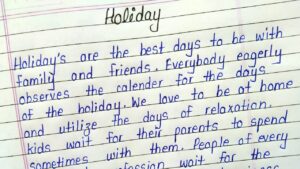 Holiday
Holiday's are the best days to be with
family and friends. Everybody eagerly
observes the calender for the days
of the holiday. We love to be at home
and utilize the days of relaxation.
kids wait for their parents to spend
sometimes with them. People of every
profession wait for the